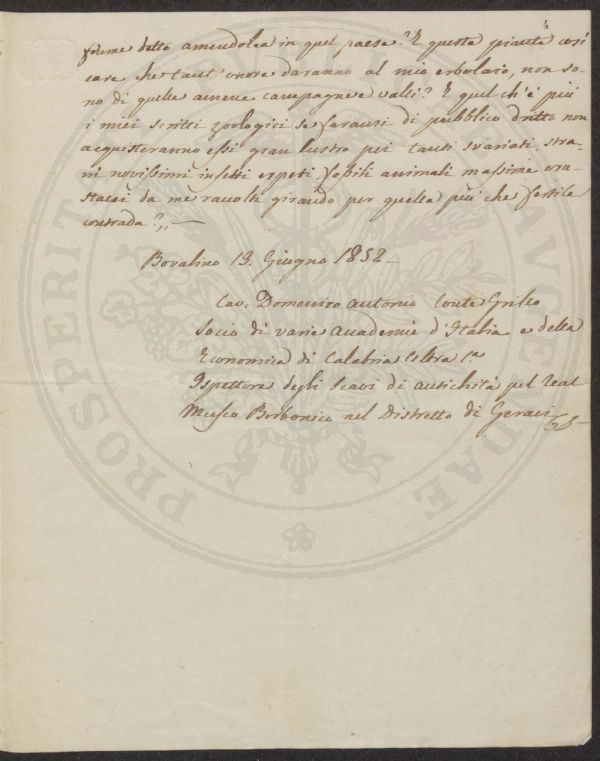 4
fiume detto amendolea in quel paese? E queste piante così
care che tant'onore daranno al mio erbolaio, non so-
no di quelle amene campagne e valli? E quel ch'è più
i miei scritti zoologici se faransi di pubblico dritto non
acquisteranno essi gran lustro pei tanti svariati, stra-
ni novissimi insetti erpeti fossili animali massime cra-
stacei da me raccolti girando per quella più che fertile
contrada?,,—
Bovalino 13. Giugno 1852—
Cav: Domenico Antonio Conte Grillo
Socio di varie Accademie d'Italia e della
Economica di Calabria Ultra 1.a
Ispettore degli Scavi di antichità pel Real
Museo Borbonico nel Distretto di Geraci
PROSPERITATI AUGENDAE